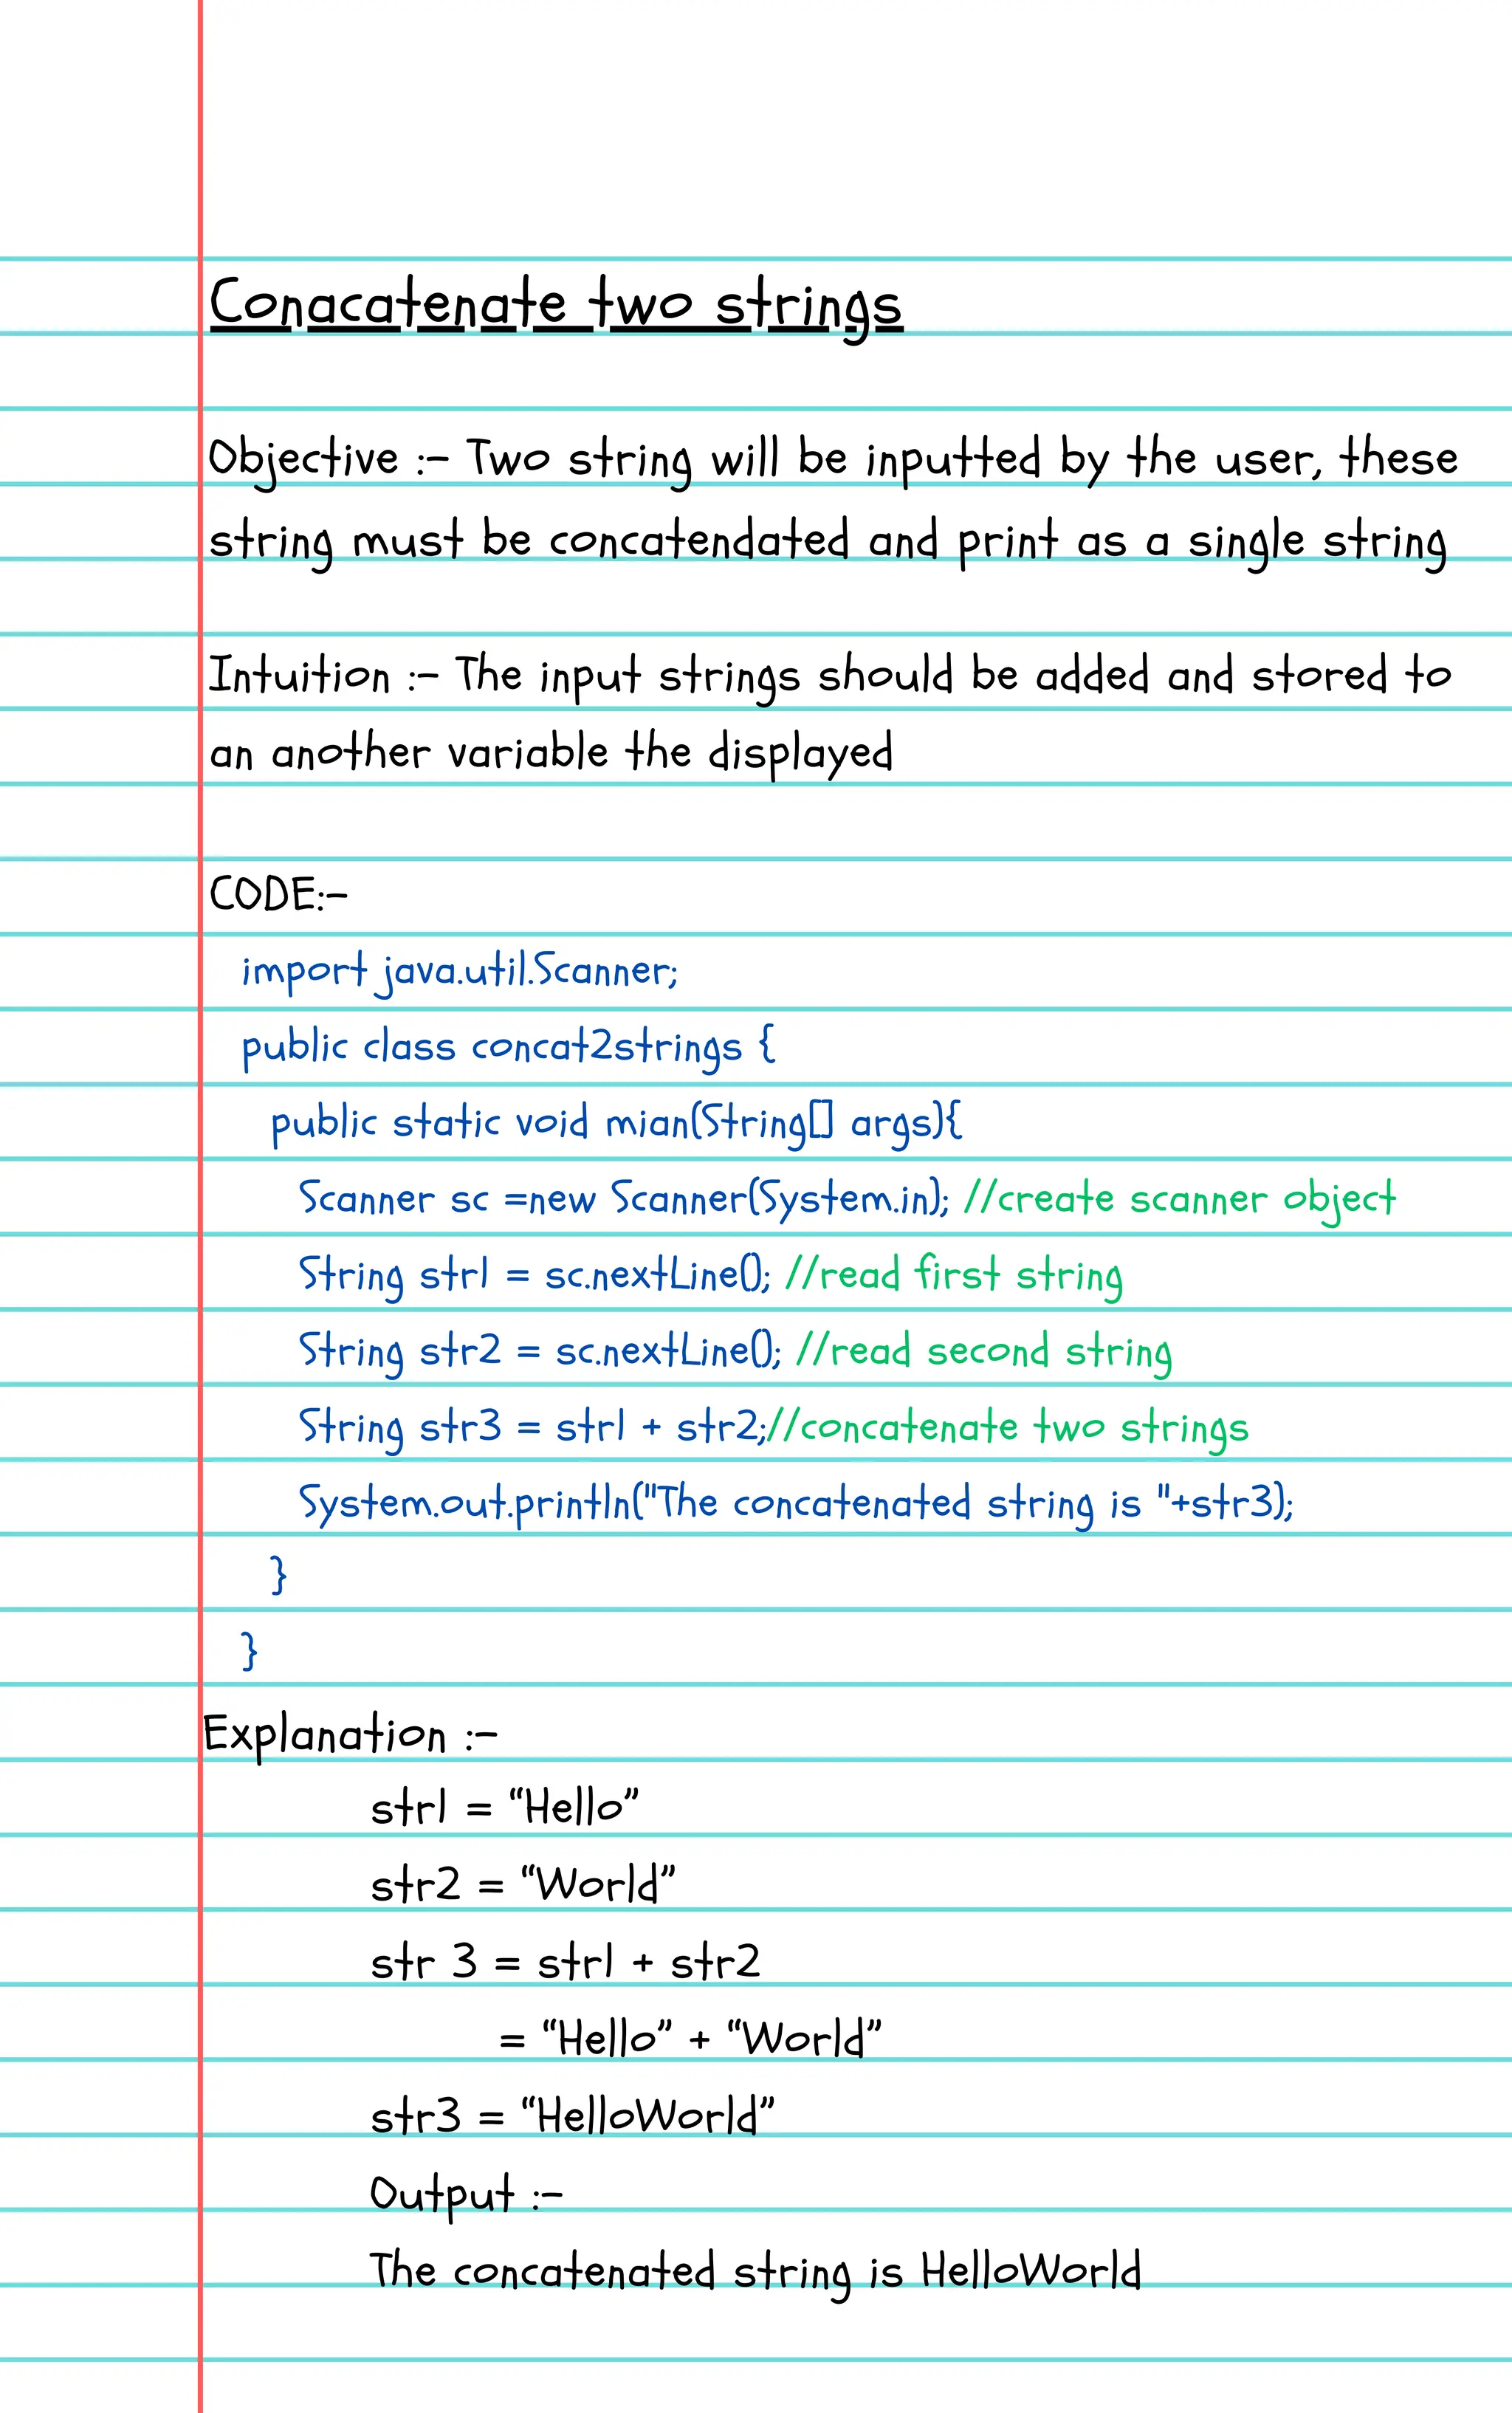 Conacatenate two strings
Objective :- Two string will be inputted by the user, these
string must be concatendated and print as a single string
Intuition :- The input strings should be added and stored to
an another variable the displayed
CODE:-
import java.util.Scanner;
public class concat2strings {
public static void mian(String[] args){
Scanner sc =new Scanner(System.in); //create scanner object
String str1 = sc.nextLine(); //read first string
String str2 = sc.nextLine(); //read second string
String str3 = str1 + str2;//concatenate two strings
System.out.println("The concatenated string is "+str3);
}
}
Explanation :-
str1 = “Hello”
str2 = “World”
str 3 = str1 + str2
= “Hello” + “World”
str3 = “HelloWorld”
Output :-
The concatenated string is HelloWorld